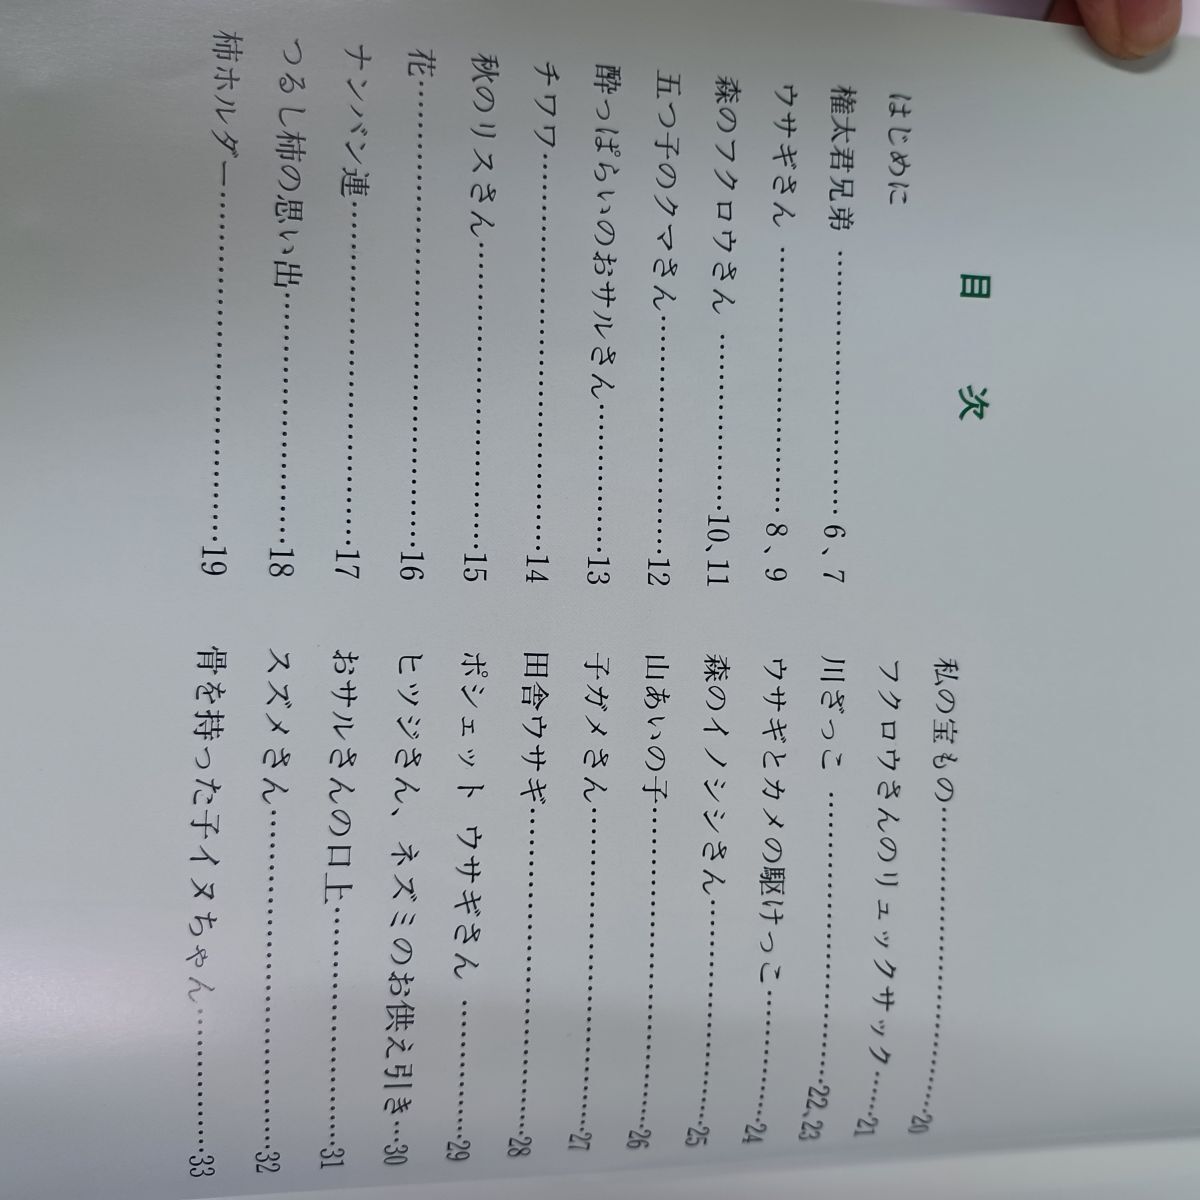 目 次
はじめに
権太君兄弟 ………………………… 6、7
ウサギさん ………………………… 8、9
森のフクロウさん ………………… 10、11
五つ子のクマさん ………………… 12
酔っぱらいのおサルさん ………… 13
チワワ ……………………………… 14
秋のリスさん ……………………… 15
花 …………………………………… 16
ナンバン連 ………………………… 17
つるし柿の思い出 ………………… 18
柿ホルダー ………………………… 19
私の宝もの ………………………… 20
フクロウさんのリュックサック …… 21
川ざっこ …………………………… 22、23
ウサギとカメの駆けっこ ………… 24
森のイノシシさん ………………… 25
山あいの子 ………………………… 26
子ガメさん ………………………… 27
田舎ウサギ ………………………… 28
ポシェット ウサギさん …………… 29
ヒツジさん、ネズミのお供え引き … 30
おサルさんの口上 ………………… 31
スズメさん ………………………… 32
骨を持った子イヌちゃん ………… 33